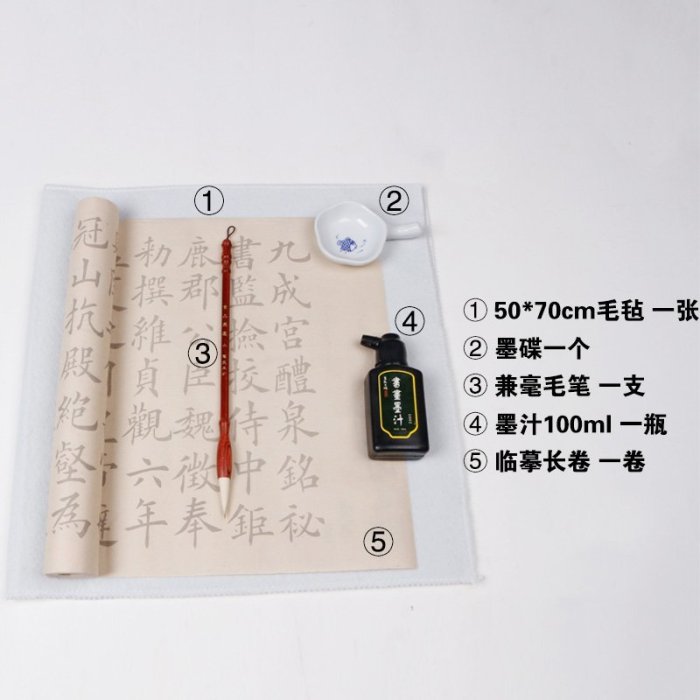 ①
②
③
④
⑤
九成宮醴泉銘祕
書監檢校侍中鉅
鹿郡公臣魏徵奉
勑撰維貞觀六年
冠山抗殿絕壑為
書畫墨汁
① 50*70cm毛毡 一张
② 墨碟一个
③ 兼毫毛笔 一支
④ 墨汁100ml 一瓶
⑤ 临摹长卷 一卷